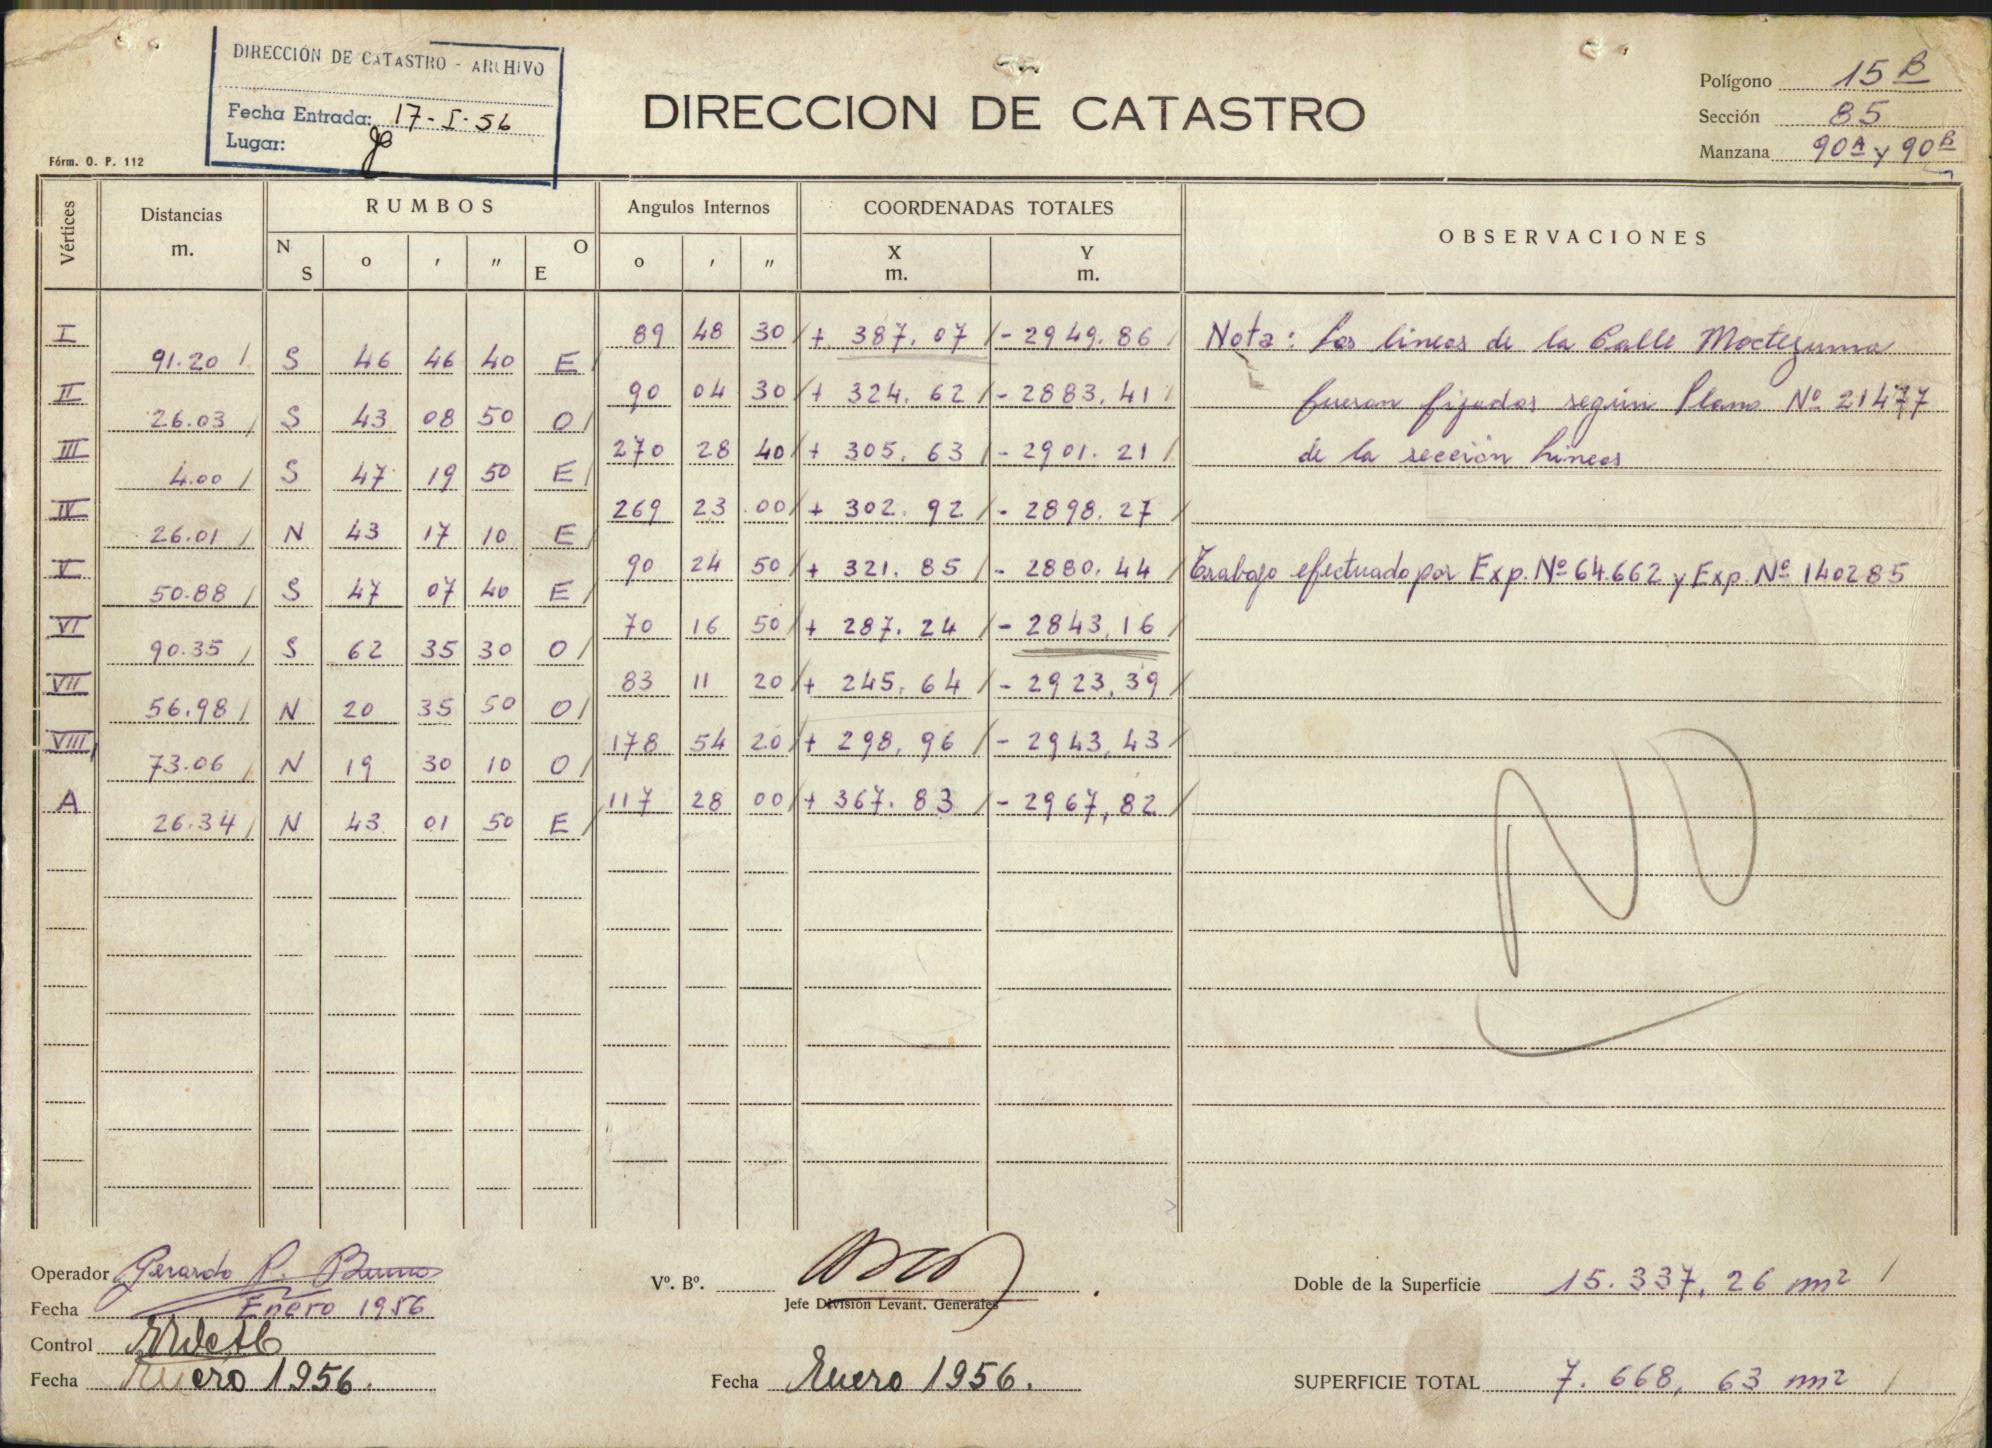 DIRECCIÓN DE CATASTRO - ARCHIVO
Fecha Entrada: 17-I-56
Lugar:
Fórm. O. P. 112
DIRECCION DE CATASTRO
Polígono 15 B
Sección 85
Manzana 90 A y 90 B
Vértices Distancias m. RUMBOS Angulos Internos COORDENADAS TOTALES OBSERVACIONES
N S o ' " O E o ' " X m. Y m.
I 89 48 30 + 387.07 - 2949.86
91.20 S 46 46 40 E
II 90 04 30 + 324.62 - 2883.41
26.03 S 43 08 50 O
III 270 28 40 + 305.63 - 2901.21
4.00 S 47 19 50 E
IV 269 23 00 + 302.92 - 2898.27
26.01 N 43 17 10 E
V 90 24 50 + 321.85 - 2880.44
50.88 S 47 07 40 E
VI 70 16 50 + 287.24 - 2843.16
90.35 S 62 35 30 O
VII 83 11 20 + 245.64 - 2923.39
56.98 N 20 35 50 O
VIII 178 54 20 + 298.96 - 2943.43
73.06 N 19 30 10 O
A 117 28 00 + 367.83 - 2967,82
26.34 N 43 01 50 E
Nota: Las lineas de la Calle Moctezuma
fueron fijadas según Plano Nº 21477
de la sección Lineas
Trabajo efectuado por Exp. Nº 64.662 y Exp. Nº 140285
NO
Operador Gerardo P. Bruno
Fecha Enero 1956
Control
Fecha Enero 1956.
Vº. Bº.
Jefe División Levant. Generales
Fecha Enero 1956.
Doble de la Superficie 15.337,26 m2
SUPERFICIE TOTAL 7.668,63 m2